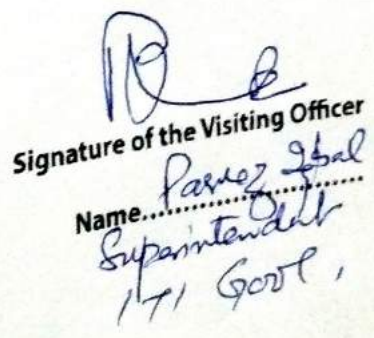 Signature of the Visiting Officer
Name.......................... Parvez Iqbal
Superintendent
ITI Gool,